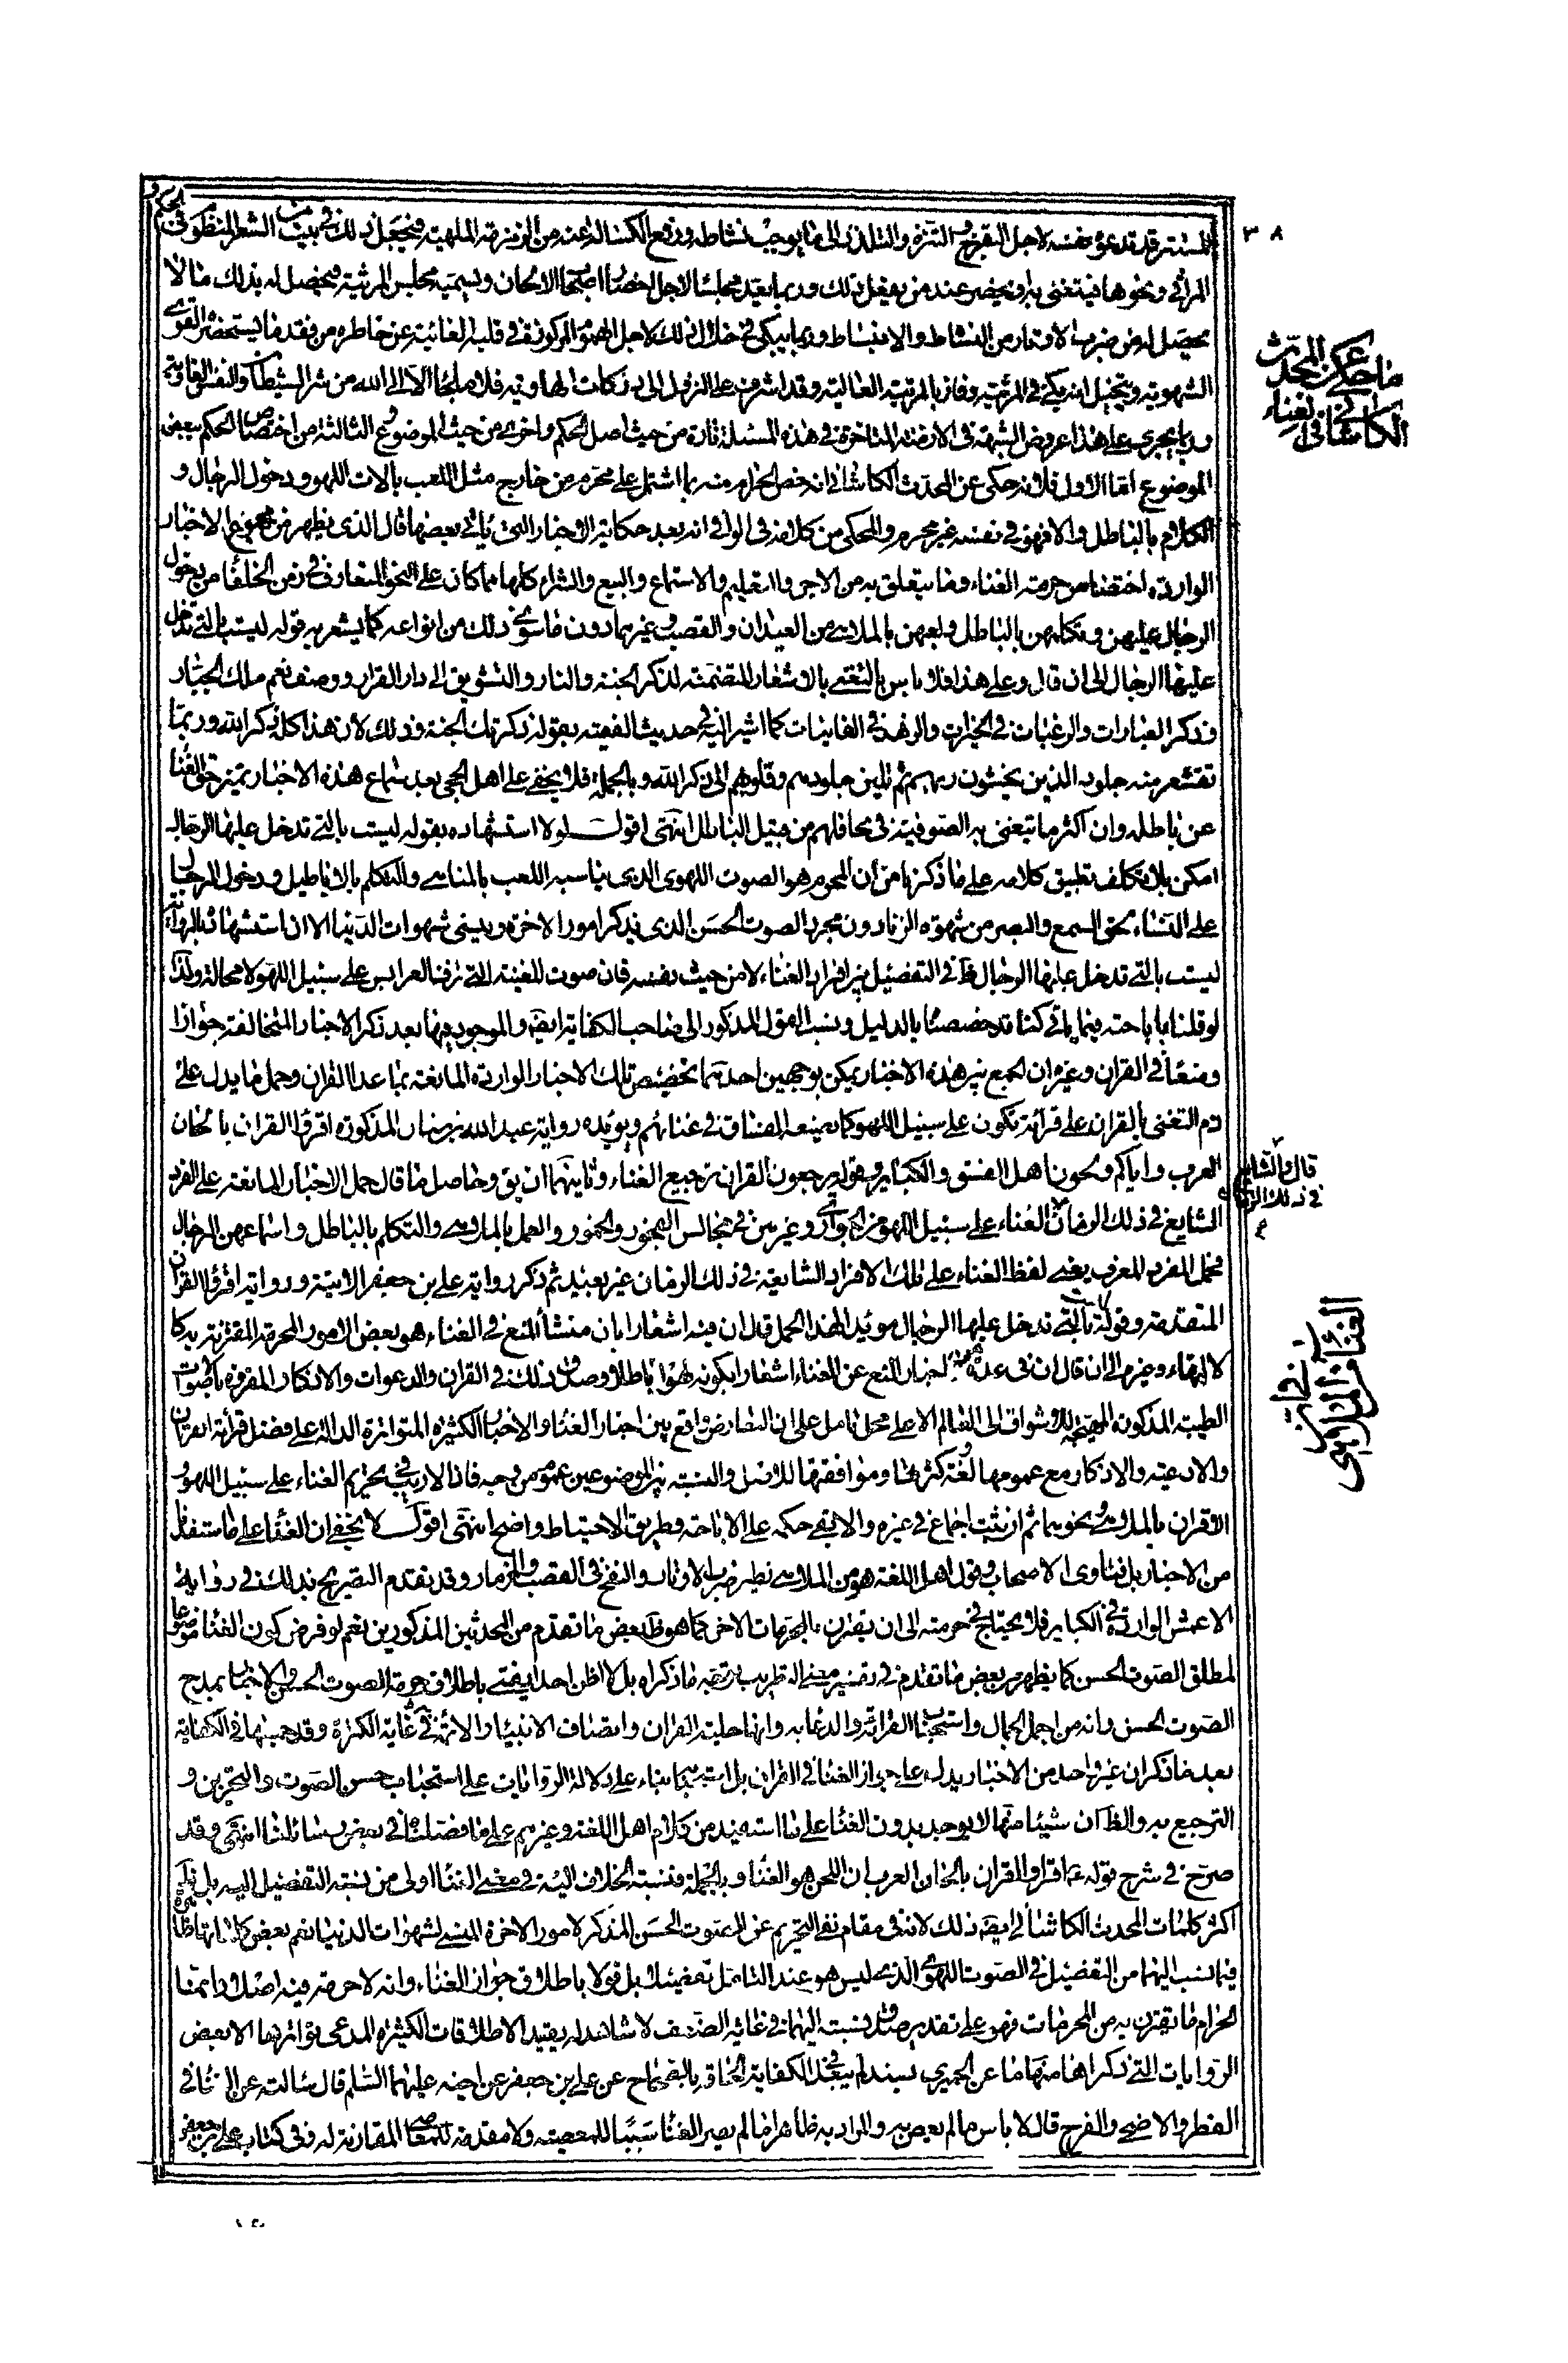 ٣٨
المتستر قد تدعوه نفسه لاجل التفرج والتنزه والتلذذ الى ما يوجب نشاطه ورفع الكسالة عنه من الزمزمة الملهية فيجعل ذلك في بيت من الشعر المنظوم في الحكم و
المراثي ونحوها فيتغنى به او يحضر عند من يفعل ذلك وربما يعد مجلسا لاجل احضار اصحاب الالحان ويسميه مجلس المرثية فيحصل له بذلك ما لا
يحصل له من ضرب الاوتار من النشاط والانبساط وربما يبكى في خلال ذلك لاجل الهموم المركوزة في قلبه الغائبة عن خاطره من فقد ما يستحضره القوى
الشهوية ويتخيل انه بكى في المرثية وفاز بالمرتبة العالية وقد اشرف على النزول الى دركات الهاوية فلا ملجأ الا الى الله من شر الشيطان والنفس الغاوية
وربما يجرى على هذا عروض الشبهة في الازمنة المتاخرة في هذه المسئلة تارة من حيث اصل الحكم واخرى من حيث الموضوع الثالثة من اختصاص الحكم ببعض
الموضوع اما الاول فلانه حكى عن المحدث الكاشانى انه خص الحرام منه بما اشتمل على محرم من خارج مثل اللعب بالات اللهو ودخول الرجال و
الكلام بالباطل والا فهو في نفسه غير محرم والمحكى من كلامه في الوافى انه بعد حكاية الاخبار التى ياتى بعضها قال الذى يظهر من مجموع الاخبار
الواردة اختصاص حرمة الغناء وما يتعلق به من الاجر والتعليم والاستماع والبيع والشراء كلها بما كان على النحو المتعارف في زمن الخلفاء من دخول
الرجال عليهن وتكلمهن بالباطل ولعبهن بالملاهى من العيدان والقصب وغيرهما دون ما سوى ذلك من انواعه كما يشعر به قوله ليست بالتى تدخل
عليها الرجال الى ان قال وعلى هذا فلا باس بالتغنى بالاشعار المتضمنة لذكر الجنة والنار والتشويق الى دار القرار ووصف نعم ملك الجبار
وذكر العبادات والرغبات في الخيرات والزهد في الفانيات كما اشير اليه في حديث الفقيه بقوله ذكرتك الجنة وذلك لان هذا كله ذكر الله وربما
تقشعر منه جلود الذين يخشون ربهم ثم تلين جلودهم وقلوبهم الى ذكر الله وبالجملة فلا يخفى على اهل الحجى بعد سماع هذه الاخبار تميز حق الغناء
عن باطله وان اكثر ما يتغنى به الصوفية في محافلهم من قبيل الباطل انتهى اقول لولا استشهاده بقوله ليست بالتى تدخل عليها الرجال
امكن بلا تكلف تطبيق كلامه على ما ذكرناه من ان المحرم هو الصوت اللهوى الذى يناسبه اللعب بالملاهى والتكلم بالاباطيل ودخول الرجال
على النساء لحق السمع والبصر من شهوة الزنا دون مجرد الصوت الحسن الذى يذكر امور الاخرة وينسى شهوات الدنيا الا ان استشهاده بالرواية
ليست بالتى تدخل عليها الرجال ظ في التفصيل بين افراد الغناء لا من حيث نفسه فان صوت المغنية التى تزف العرايس على سبيل اللهو لا محالة ولذا
لو قلنا باباحته فيما ياتى كنا قد خصصناه بالدليل ونسب القول المذكور الى صاحب الكفاية ايضه والموجود فيها بعد ذكر الاخبار المتخالفة جوازا
ومنعا في القران وغيره ان الجمع بين هذه الاخبار يمكن بوجهين احدهما تخصيص تلك الاخبار الواردة المانعة بما عدا القران وحمل ما يدل على
ذم التغنى بالقران على قرائة تكون على سبيل اللهو كما يصنعه الفساق في غنائهم ويؤيده رواية عبد الله بن سنان المذكورة اقرؤا القران بالحان
العرب واياكم ولحون اهل الفسق والكباير وقوله يرجعون القران ترجيع الغناء وثانيهما ان يق وحاصل ما قال حمل الاخبار المانعة على الفرد
الشايع في ذلك الزمان الغناء على سبيل اللهو من الجوارى وغيرهن في مجالس الفجور والخمور والعمل بالملاهى والتكلم بالباطل واسماعهن الرجال
فحمل المفرد المعرف يعنى لفظ الغناء على تلك الافراد الشايعة في ذلك الزمان غير بعيد ثم ذكر رواية على بن جعفر الاتية ورواية اقرؤا القران
المتقدمة وقوله ليست بالتى تدخل عليها الرجال مؤيدا لهذا الحمل قال ان فيه اشعارا بان منشأ المنع في الغناء هو بعض الامور المحرمة المقترنة به كا
لالهاء وغيره الى ان قال ان في عدة من اخبار المنع عن الغناء اشعارا بكونه لهوا باطلا وصدق ذلك في القران والدعوات والاذكار المقروة بالاصوات
الطيبة المذكرة المهيجة للاشواق الى العالم الاعلى محل تامل على ان التعارض واقع بين اخبار الغناء والاخبار الكثيرة المتواترة الدالة على فضل قرائة القران
والادعية والاذكار مع عمومها لغة وكثرتها وموافقتها للاصل والنسبة بين الموضوعين عموم من وجه فاذا لا ريب في تحريم الغناء على سبيل اللهو و
الاقتران بالملاهى ونحوهما ثم ان ثبت اجماع في غيره والا بقى حكمه على الاباحة وطريق الاحتياط واضح انتهى اقول لا يخفى ان الغناء على ما استفدنا
من الاخبار بل فتاوى الاصحاب وقول اهل اللغة هو من الملاهى نظير ضرب الاوتار والنفخ في القصب والمزمار وقد تقدم التصريح بذلك في رواية
الاعمش الواردة في الكباير فلا يحتاج في حرمته الى ان يقترن بالمحرمات الاخر كما هو ظ بعض ما تقدم من المحدثين المذكورين نعم لو فرض كون الغناء موضوعا
لمطلق الصوت الحسن كما يظهر من بعض ما تقدم في تفسير معنى التطريب توجه ما ذكراه بل لا اظن احدا يفتى باطلاق حرمة الصوت الحسن والاخبار بمدح
الصوت الحسن وانه من اجمل الجمال واستحباب القرائة والدعاء به وانها حلية القران واتصاف الانبياء والائمة في غاية الكثرة وقد جمعها في الكفاية
بعد ما ذكر ان غير واحد من الاخبار يدل على جواز الغناء في القران بل استحبابه بناء على دلالة الروايات على استحباب حسن الصوت والتحزين و
الترجيع به والظ ان شيئا منها لا يوجد بدون الغناء على ما استفيد من كلام اهل اللغة وغيرهم على ما فصلناه في بعض رسائلنا انتهى وقد
صرح في شرح قوله ع اقرؤا القران بالحان العرب ان اللحن هو الغناء وبالجملة فنسبة الخلاف اليه في معنى الغناء اولى من نسبة التفصيل اليه بل ظاهر
اكثر كلمات المحدث الكاشانى ايضه ذلك لانه في مقام نفى التحريم عن الصوت الحسن المذكر لامور الاخرة المنسى لشهوات الدنيا نعم بعض كلماتهما ظاهرة
فيما نسب اليهما من التفصيل في الصوت اللهوى الذى ليس هو عند التامل تفصيلا بل قولا باطلاق جواز الغناء وانه لا حرمة فيه اصلا وانما
الحرام ما يقترن به من المحرمات فهو على تقدير صدق نسبته اليهما في غاية الضعف لا شاهد له يقيد الاطلاقات الكثيرة المدعى تواترها الا بعض
الروايات التى ذكراها منها ما عن الحميرى بسند لم يبعد في الكفاية الحاقه بالصحاح عن على بن جعفر عن اخيه عليهما السلم قال سالته عن الغناء في
الفطر والاضحى والفرح قال لا باس ما لم يعص به والمراد به ظاهرا ما لم يصر الغناء سببا للمعصية ولا مقدمة للمعاصى المقارنة له وفى كتاب على بن جعفر
ما حكى عن المحدث
الكاشانى في الغناء
قال والشايع
في ذلك الزمان
الغناء في المراثى